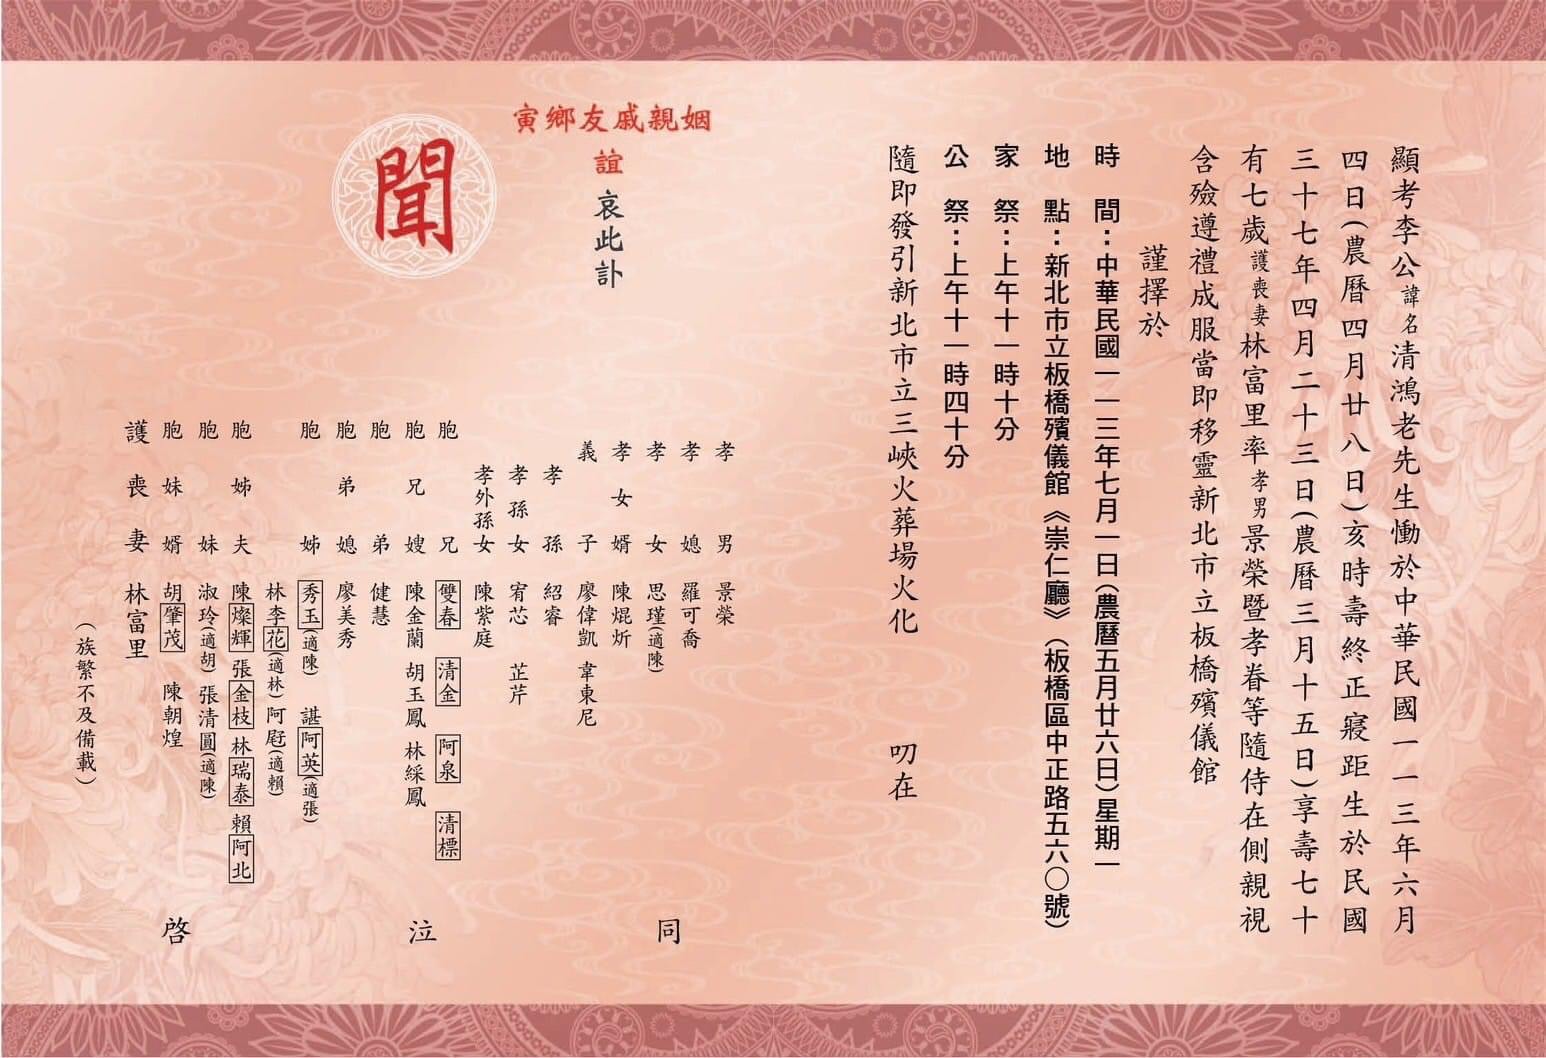 顯考李公諱名清鴻老先生慟於中華民國一一三年六月
四日(農曆四月廿八日)亥時壽終正寢距生於民國
三十七年四月二十三日(農曆三月十五日)享壽七十
有七歲護喪妻林富里率孝男景榮暨孝眷等隨侍在側親視
含殮遵禮成服當即移靈新北市立板橋殯儀館
謹擇於
時 間：中華民國一一三年七月一日(農曆五月廿六日)星期一
地 點：新北市立板橋殯儀館《崇仁廳》(板橋區中正路五六〇號)
家 祭：上午十一時十分
公 祭：上午十一時四十分
隨即發引新北市立三峽火葬場火化 叨在
姻親戚友鄉寅
誼哀此訃
聞
孝男 景榮
孝媳 羅可喬
孝女 思瑾(適陳)
孝女婿 陳焜炘
義子 廖偉凱 韋東尼
孝孫 紹睿
孝孫女 宥芯 芷芹
孝外孫女 陳紫庭
胞兄 雙春 清金 阿泉 清標
胞兄嫂 陳金蘭 胡玉鳳 林綵鳳
胞弟 健慧
胞弟媳 廖美秀
胞姊 秀玉(適陳) 諶阿英(適張)
林李花(適林) 阿屘(適賴)
胞姊夫 陳燦輝 張金枝 林瑞泰 賴阿北
胞妹 淑玲(適胡) 張清圓(適陳)
胞妹婿 胡肇茂 陳朝煌
護喪妻 林富里
(族繁不及備載)
同 泣 啓